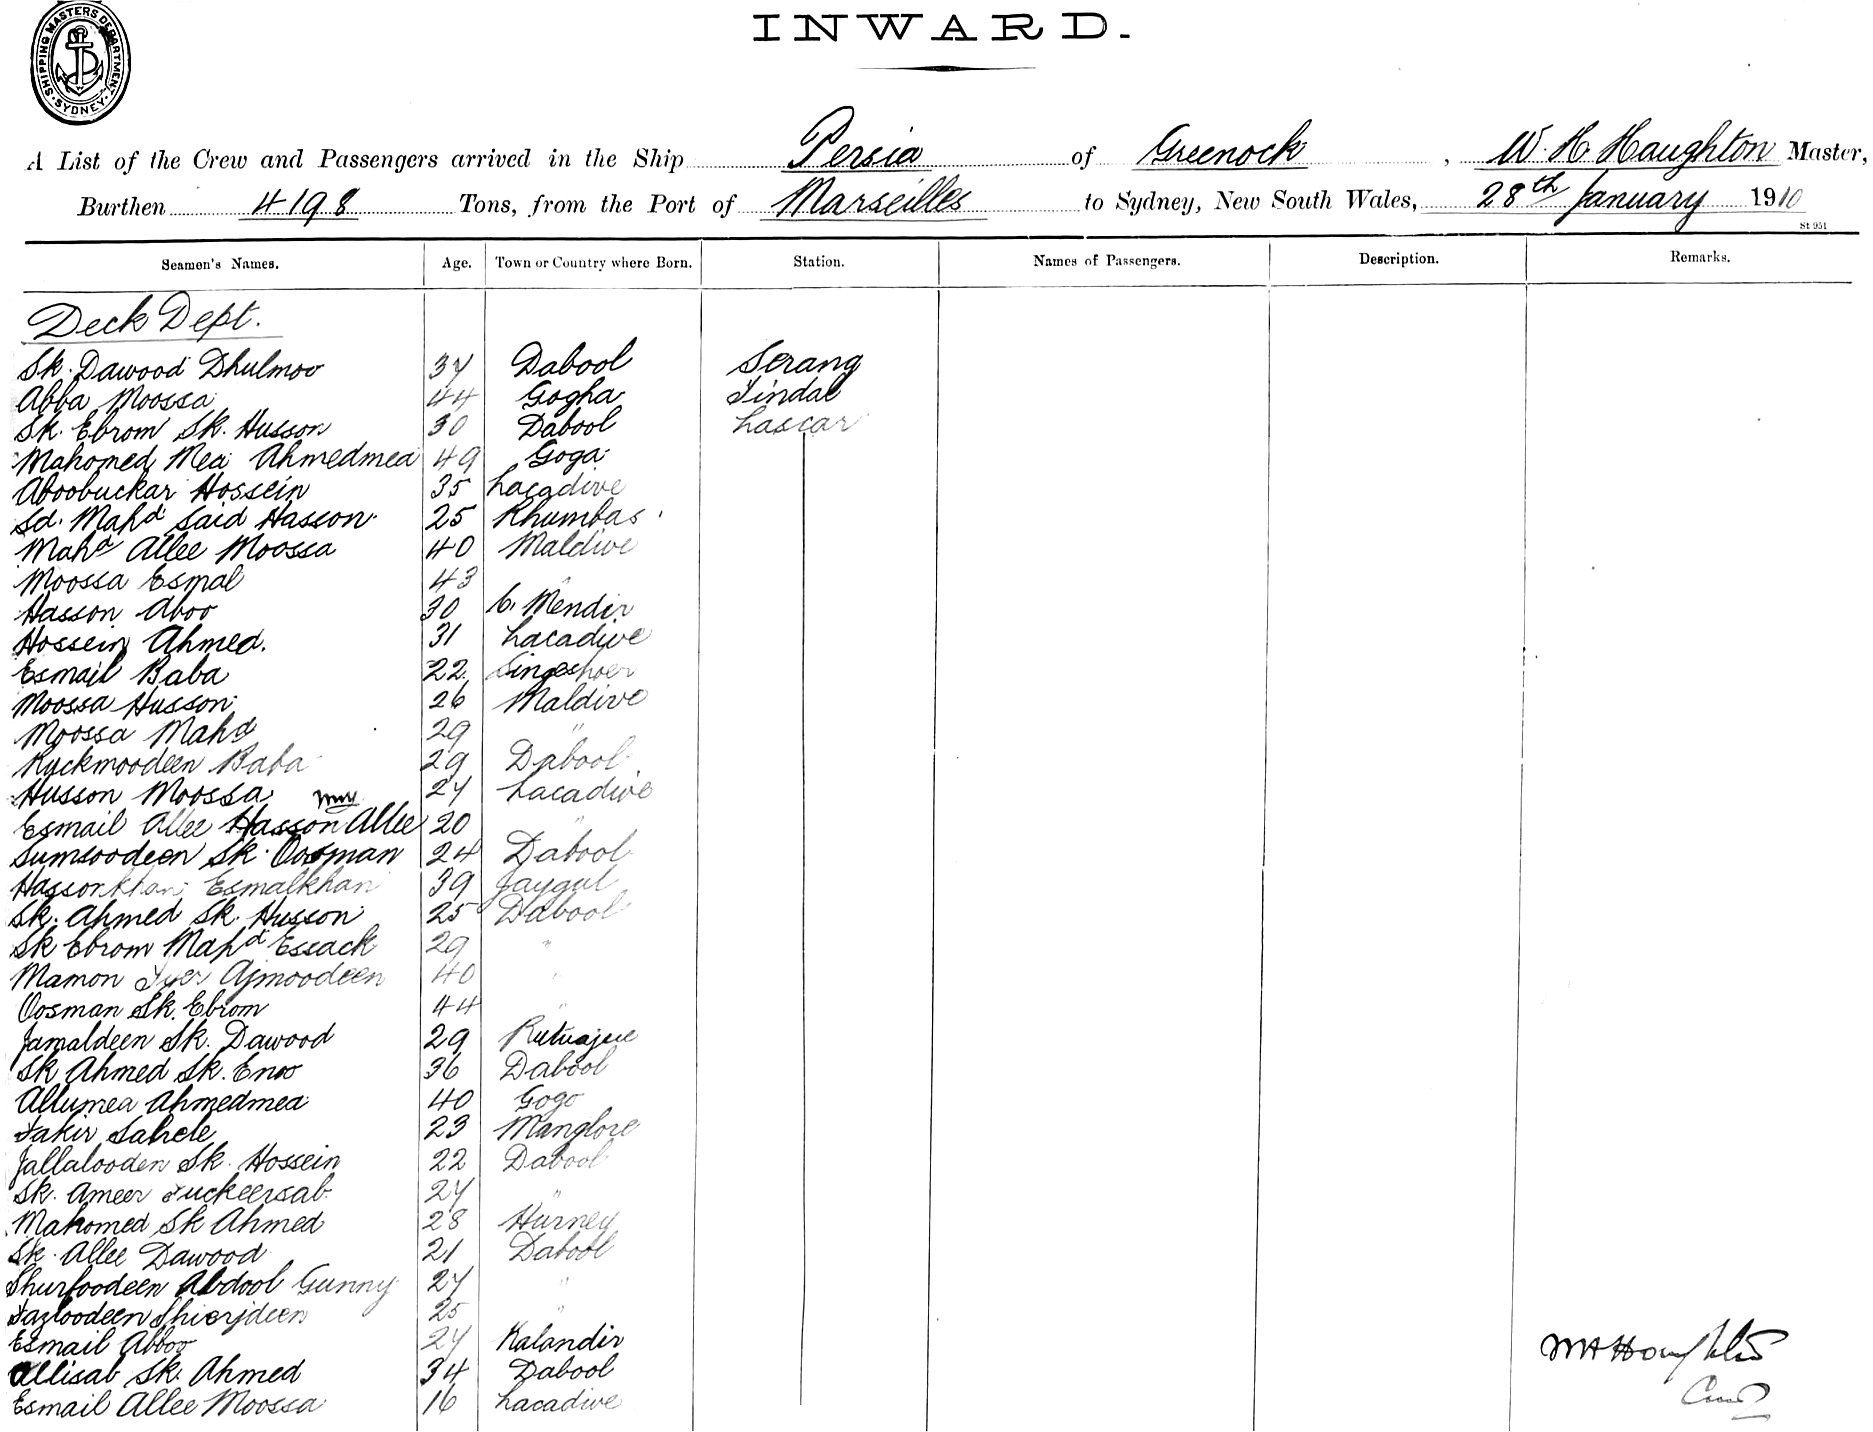 SHIPPING MASTERS DEPARTMENT · SYDNEY ·
INWARD.
A List of the Crew and Passengers arrived in the Ship Persia of Greenock, W. H. Haughton Master,
Burthen 4198 Tons, from the Port of Marseilles to Sydney, New South Wales, 28th January 1910
St 951
Seamen's Names. Age. Town or Country where Born. Station. Names of Passengers. Description. Remarks.
Deck Dept.
Sk. Dawood Dhulmoo 37 Dabool Serang
Abba Moossa 44 Gogha Tindal
Sk. Ebrom Sk. Husson 30 Dabool Lascar
Mahomed Mea Ahmedmea 49 Goga
Aboobuckar Hossein 35 Lacadive
Sd. Mahd Said Hasson 25 Khumbas
Mahd Allee Moossa 40 Maldive
Moossa Esmal 43 "
Hasson Aboo 30 C. Mendir
Hossein Ahmed. 31 Lacadive
Esmail Baba 22
Moossa Husson 26 Maldive
Moossa Mahd 29 "
Ruckmoodeen Baba 29 Dabool
Husson Moossa 27 Lacadive
Esmail Allee Hasson Allee 20 "
Sumsoodeen Sk. Oosman 24 Dabool
Hassonkhan Esmalkhan 39 Jaygul
Sk. Ahmed Sk. Husson 25 Dabool
Sk Ebrom Mahd Essack 29 "
Mamon Ajmoodeen 40 "
Oosman Sk. Ebrom 44 "
Jamaldeen Sk. Dawood 29
Sk Ahmed Sk. Enoo 36 Dabool
Allumea Ahmedmea 40 Gogo
Fakir Sahele 23 Manglore
Jallalooden Sk. Hossein 22 Dabool
Sk. Ameer Fuckeersab 27 "
Mahomed Sk Ahmed 28 Hurney
Sk. Allee Dawood 21 Dabool
Shurfoodeen Abdool Gunny 27 "
Fazloodeen Shierjdeen 25 "
Esmail Abboo 27 Kalandir
Allisab Sk. Ahmed 34 Dabool
Esmail Allee Moossa 16 Lacadive
WH Houghton